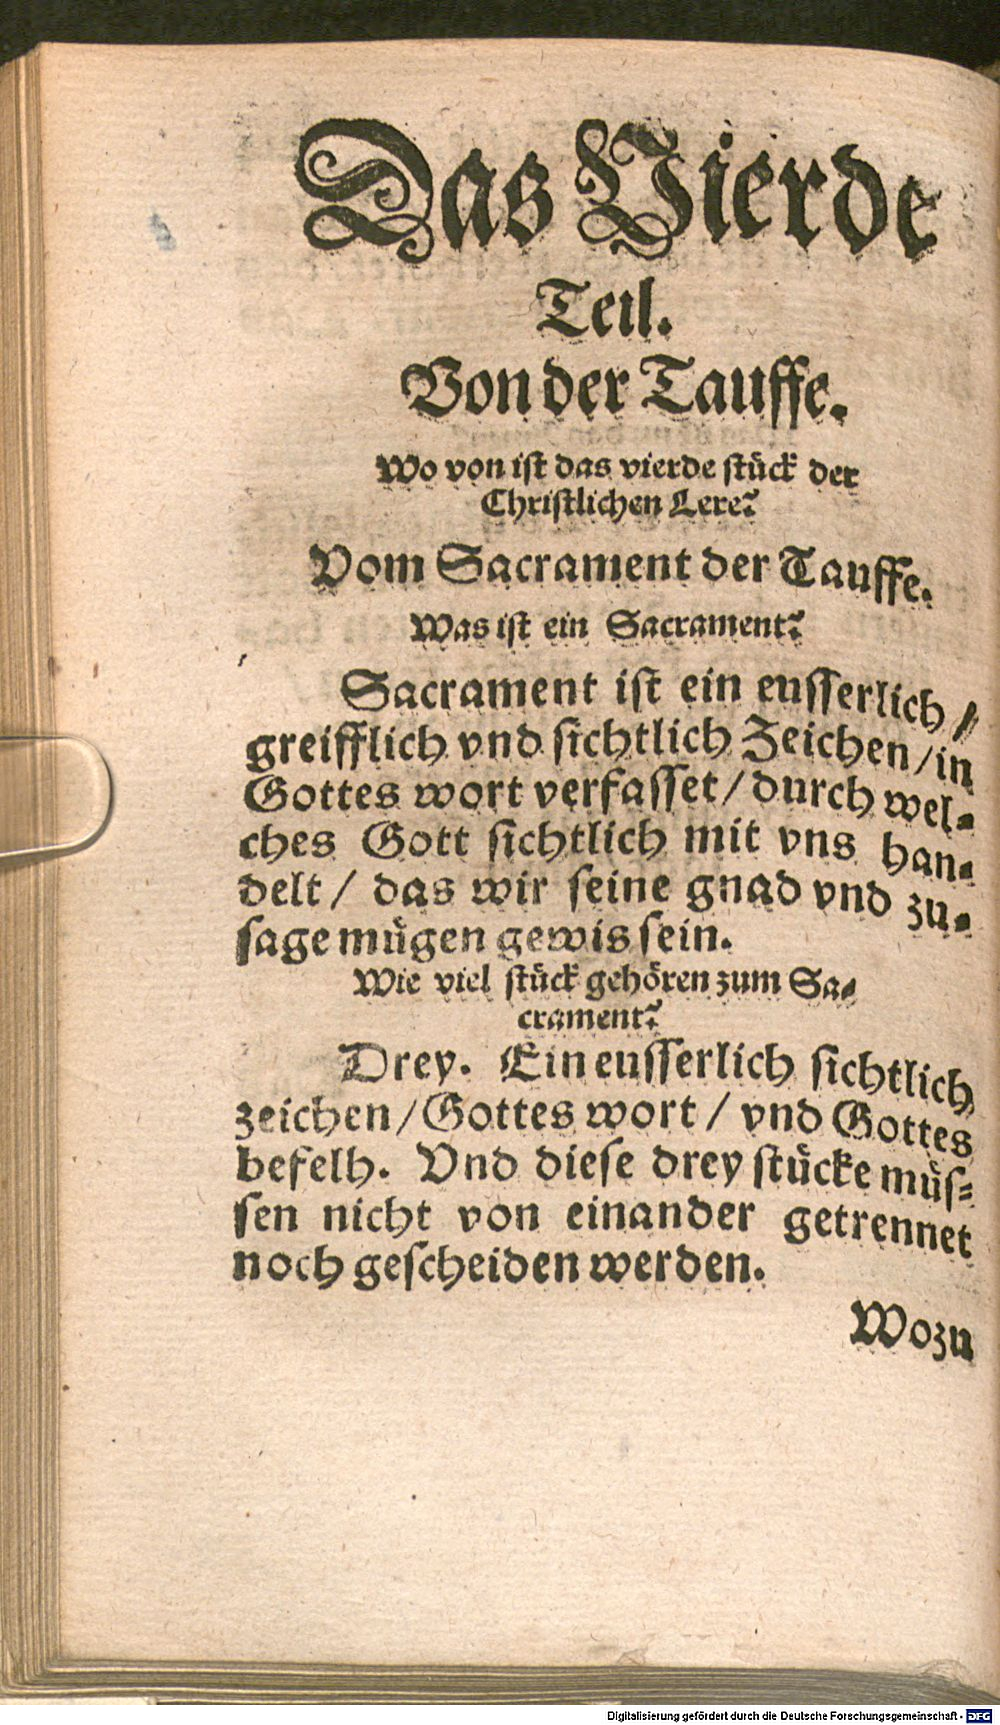 Das Vierde
Teil.
Von der Tauffe.
Wo von ist das vierde stück der
Christlichen Lere?
Vom Sacrament der Tauffe.
Was ist ein Sacrament?
Sacrament ist ein eusserlich /
greifflich vnd sichtlich Zeichen / in
Gottes wort verfasset / durch wel-
ches Gott sichtlich mit vns han-
delt / das wir seine gnad vnd zu-
sage mügen gewis sein.
Wie viel stück gehören zum Sa-
crament?
Drey. Ein eusserlich sichtlich
zeichen / Gottes wort / vnd Gottes
befelh. Vnd diese drey stücke müs-
sen nicht von einander getrennet
noch gescheiden werden.
Wozu
Digitalisierung gefördert durch die Deutsche Forschungsgemeinschaft - DFG